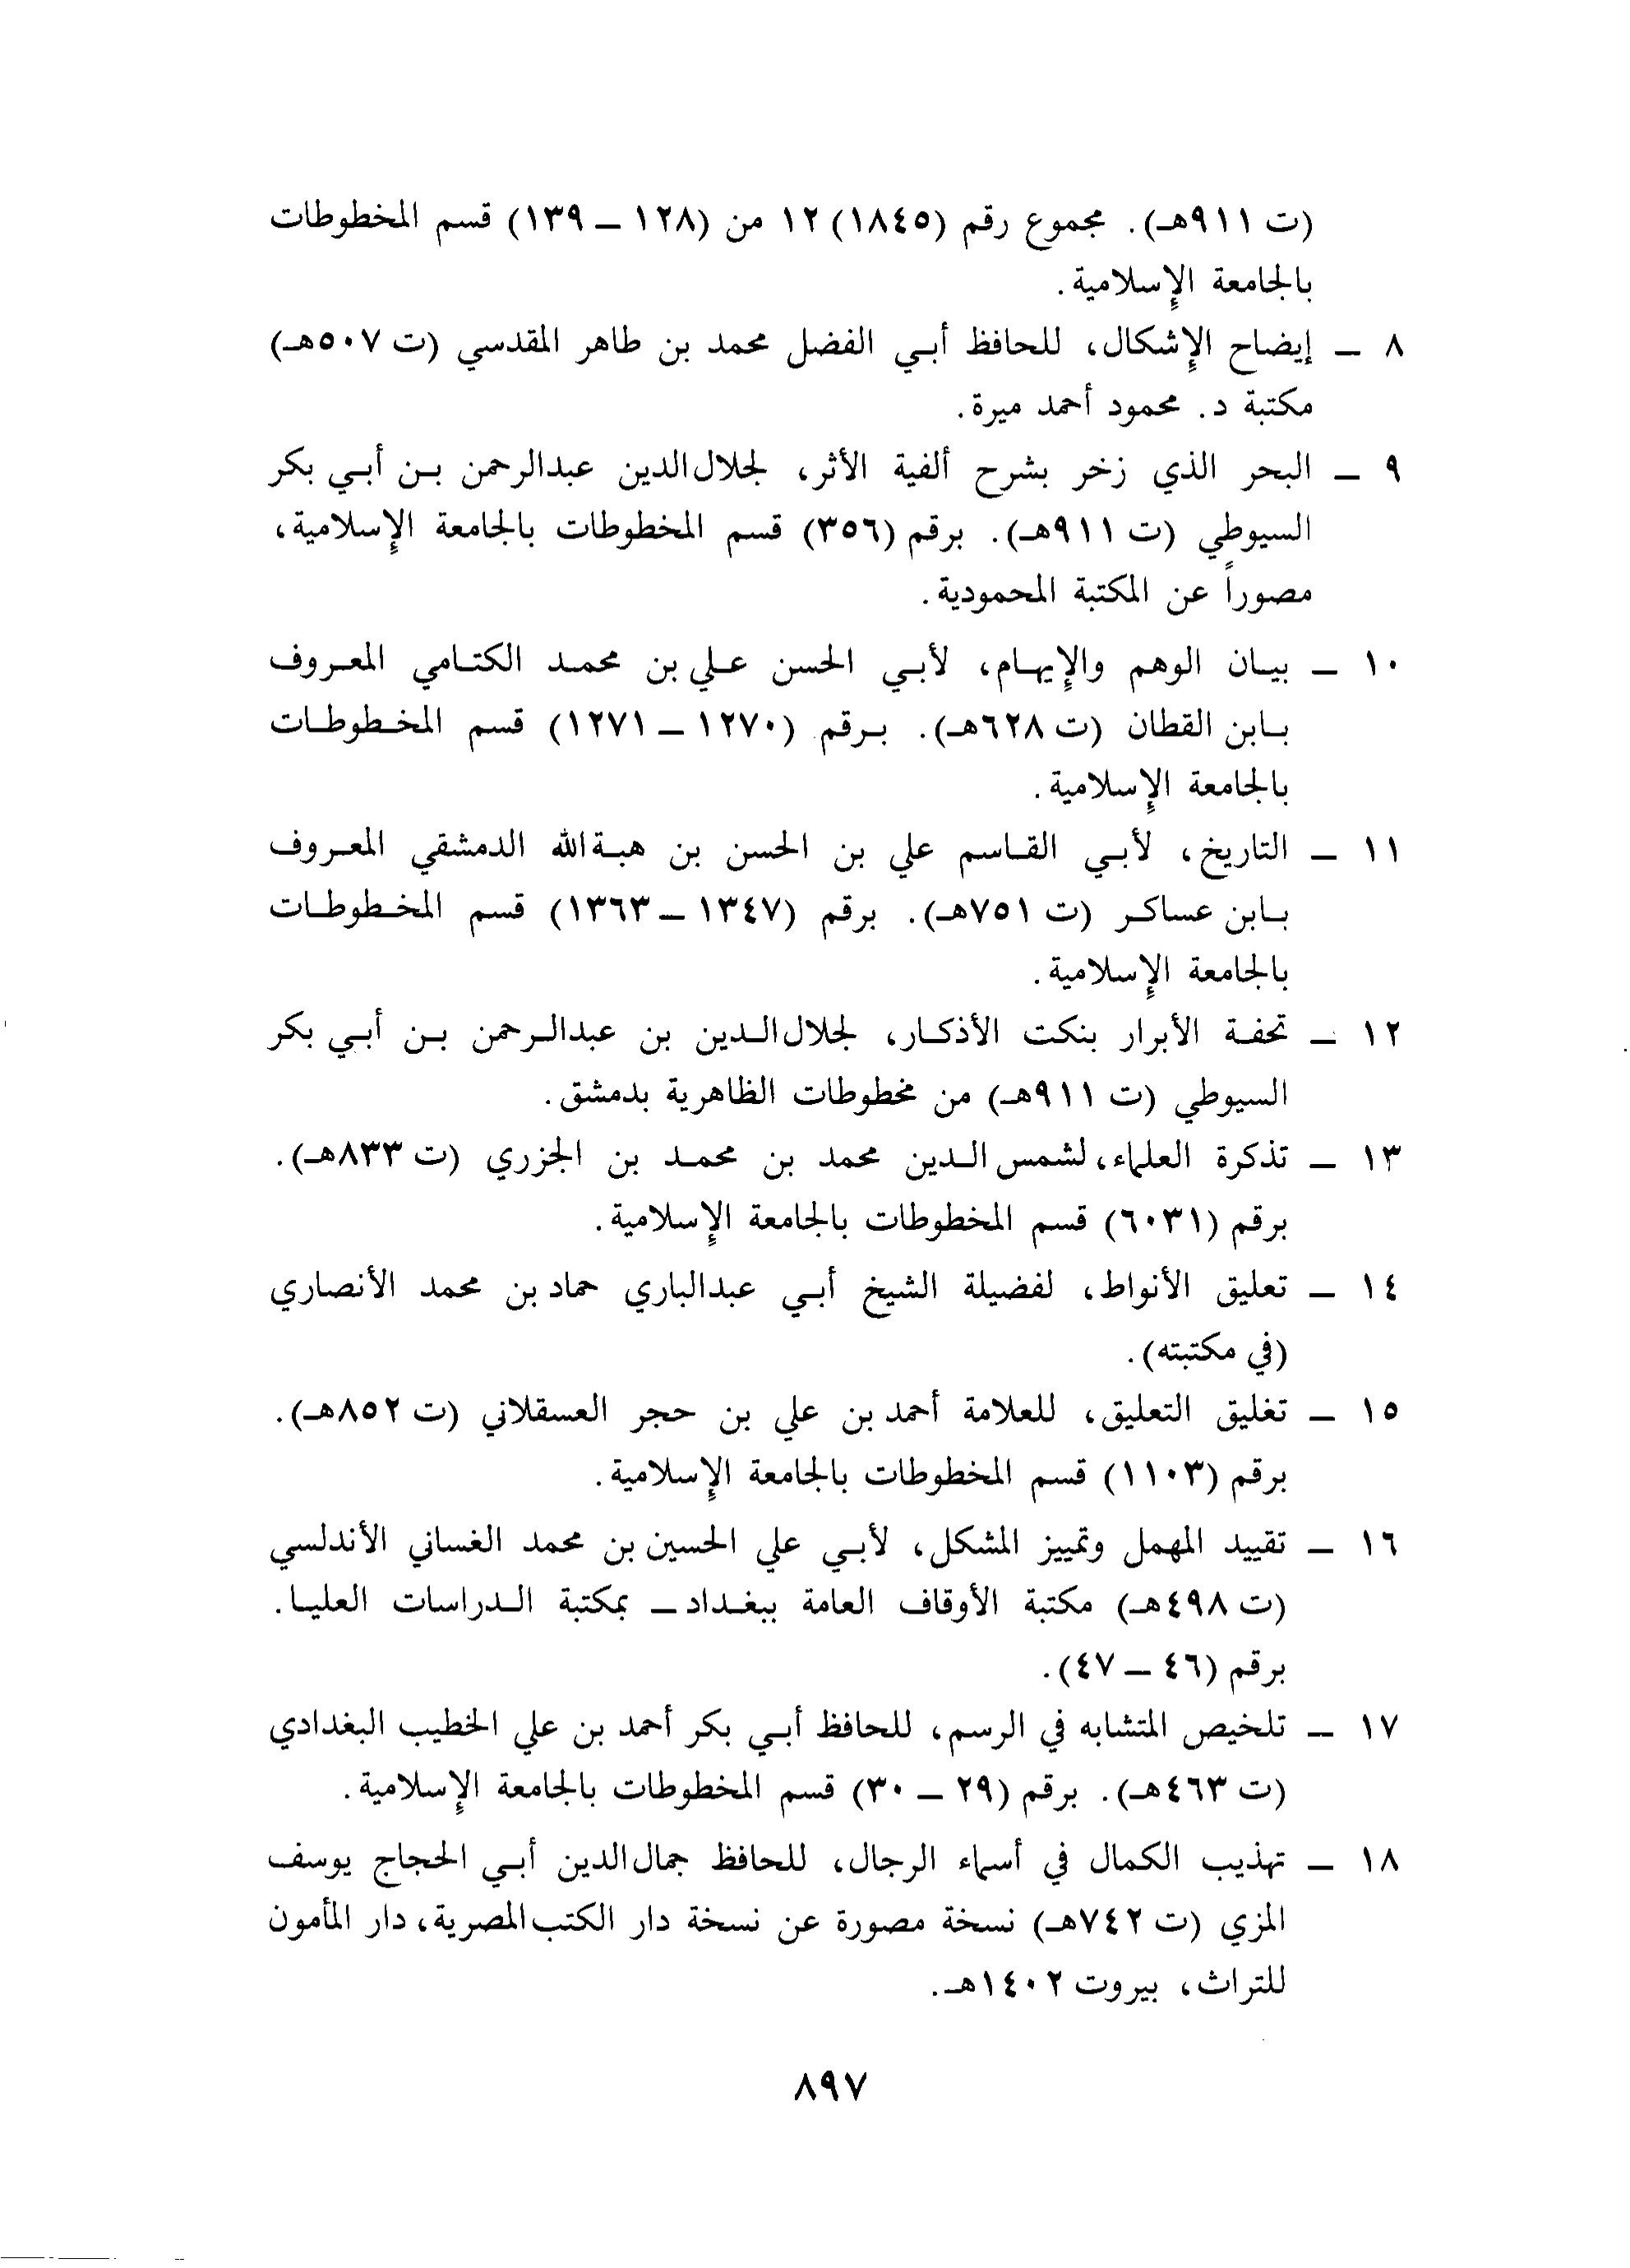 (ت ٩١١هـ). مجموع رقم (١٨٤٥) ١٢ من (١٢٨ – ١٣٩) قسم المخطوطات
بالجامعة الإسلامية.
٨ – إيضاح الإشكال، للحافظ أبي الفضل محمد بن طاهر المقدسي (ت ٥٠٧هـ)
مكتبة د. محمود أحمد ميرة.
٩ – البحر الذي زخر بشرح ألفية الأثر، لجلال الدين عبدالرحمن بن أبي بكر
السيوطي (ت ٩١١هـ). برقم (٣٥٦) قسم المخطوطات بالجامعة الإسلامية،
مصوراً عن المكتبة المحمودية.
١٠ – بيان الوهم والإيهام، لأبي الحسن علي بن محمد الكتامي المعروف
بابن القطان (ت ٦٢٨هـ). برقم (١٢٧٠ – ١٢٧١) قسم المخطوطات
بالجامعة الإسلامية.
١١ – التاريخ، لأبي القاسم علي بن الحسن بن هبة الله الدمشقي المعروف
بابن عساكر (ت ٧٥١هـ). برقم (١٣٤٧ – ١٣٦٣) قسم المخطوطات
بالجامعة الإسلامية.
١٢ – تحفة الأبرار بنكت الأذكار، لجلال الدين بن عبدالرحمن بن أبي بكر
السيوطي (ت ٩١١هـ) من مخطوطات الظاهرية بدمشق.
١٣ – تذكرة العلماء، لشمس الدين محمد بن محمد بن الجزري (ت ٨٣٣هـ).
برقم (٦٠٣١) قسم المخطوطات بالجامعة الإسلامية.
١٤ – تعليق الأنواط، لفضيلة الشيخ أبي عبدالباري حماد بن محمد الأنصاري
(في مكتبته).
١٥ – تغليق التعليق، للعلامة أحمد بن علي بن حجر العسقلاني (ت ٨٥٢هـ).
برقم (١١٠٣) قسم المخطوطات بالجامعة الإسلامية.
١٦ – تقييد المهمل وتمييز المشكل، لأبي علي الحسين بن محمد الغساني الأندلسي
(ت ٤٩٨هـ) مكتبة الأوقاف العامة ببغداد – بمكتبة الدراسات العليا.
برقم (٤٦ – ٤٧).
١٧ – تلخيص المتشابه في الرسم، للحافظ أبي بكر أحمد بن علي الخطيب البغدادي
(ت ٤٦٣هـ). برقم (٢٩ – ٣٠) قسم المخطوطات بالجامعة الإسلامية.
١٨ – تهذيب الكمال في أسماء الرجال، للحافظ جمال الدين أبي الحجاج يوسف
المزي (ت ٧٤٢هـ) نسخة مصورة عن نسخة دار الكتب المصرية، دار المأمون
للتراث، بيروت ١٤٠٢هـ.
٨٩٧